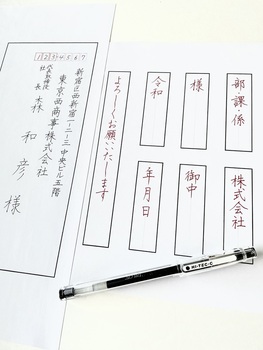 1234567
新宿区西新宿一-二-三 中央ビル五階
東京西商事株式会社
代表取締役
社長
森 和彦様
部・課・係
様
令和
よろしくお願いいたします
株式会社
御中
年月日
HI-TEC-C